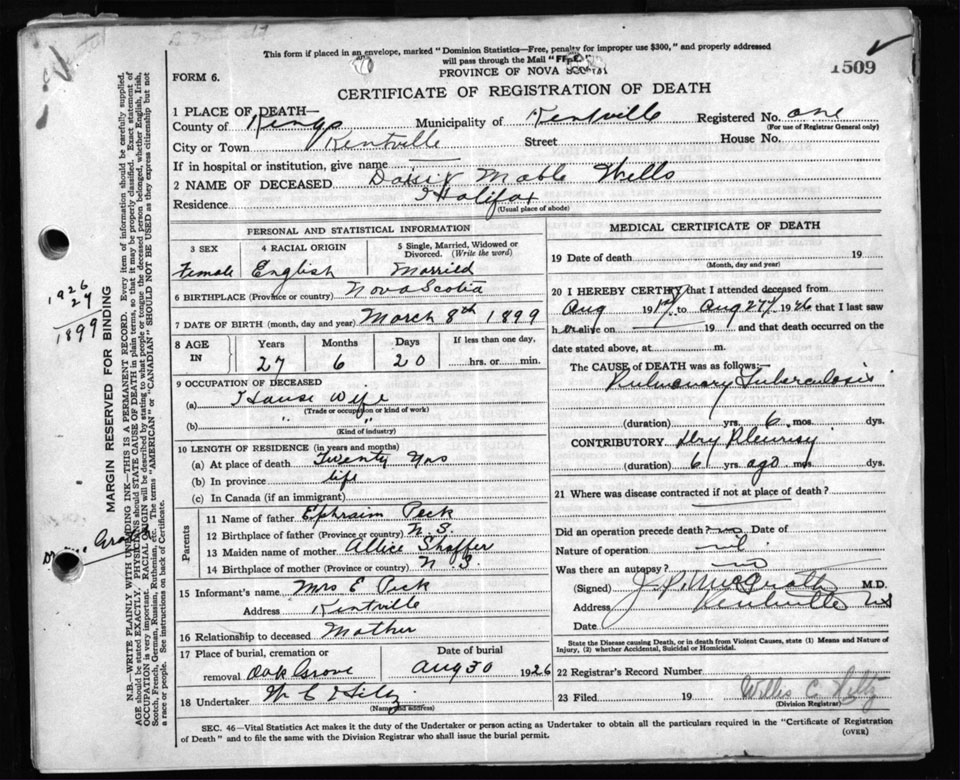 This form if placed in an envelope, marked "Dominion Statistics—Free, penalty for improper use $300," and properly addressed
will pass through the Mail "FREE."
1509
FORM 6.
PROVINCE OF NOVA SCOTIA
CERTIFICATE OF REGISTRATION OF DEATH
1 PLACE OF DEATH—
County of Kings Municipality of Kentville Registered No. one
(For use of Registrar General only)
City or Town Kentville Street House No.
If in hospital or institution, give name
2 NAME OF DECEASED Mable Wells
Residence Halifax
(Usual place of abode)
PERSONAL AND STATISTICAL INFORMATION
3 SEX 4 RACIAL ORIGIN 5 Single, Married, Widowed or Divorced. (Write the word)
Female English Married
6 BIRTHPLACE (Province or country) Nova Scotia
7 DATE OF BIRTH (month, day and year) March 8th 1899
8 AGE IN Years Months Days If less than one day,
27 6 20 hrs. or min.
9 OCCUPATION OF DECEASED
(a) House Wife
(Trade or occupation or kind of work)
(b) " "
(Kind of industry)
10 LENGTH OF RESIDENCE (in years and months)
(a) At place of death Twenty Yrs
(b) In province life
(c) In Canada (if an immigrant)
Parents
11 Name of father Ephraim Peck
12 Birthplace of father (Province or country) N S
13 Maiden name of mother Allice Shaffer
14 Birthplace of mother (Province or country) N S
15 Informant's name Mrs E Peck
Address Kentville
16 Relationship to deceased Mother
17 Place of burial, cremation or Date of burial
removal Oak Grove Aug 30 1926
18 Undertaker W C
(Name and address)
MEDICAL CERTIFICATE OF DEATH
19 Date of death 19
(Month, day and year)
20 I HEREBY CERTIFY that I attended deceased from
Aug 1st 19 to Aug 27 1926 that I last saw
h er alive on 19 and that death occurred on the
date stated above, at m.
The CAUSE of DEATH was as follows:—
Pulmonary Tuberculosis
(duration) yrs. 6 mos. dys.
CONTRIBUTORY Dry Pleurisy
(duration) 6 yrs. ago mos. dys.
21 Where was disease contracted if not at place of death?
Did an operation precede death? no Date of
Nature of operation nil
Was there an autopsy? no
(Signed) J. P. McGrath M.D.
Address Kentville NS
Date
State the Disease causing Death, or in death from Violent Causes, state (1) Means and Nature of
Injury, (2) whether Accidental, Suicidal or Homicidal.
22 Registrar's Record Number
23 Filed 19 Willis C.
(Division Registrar)
SEC. 46—Vital Statistics Act makes it the duty of the Undertaker or person acting as Undertaker to obtain all the particulars required in the "Certificate of Registration
of Death" and to file the same with the Division Registrar who shall issue the burial permit.
(OVER)
1926
27
1899
MARGIN RESERVED FOR BINDING
N.B.—WRITE PLAINLY WITH UNFADING INK—THIS IS A PERMANENT RECORD. Every item of information should be carefully supplied.
AGE should be stated EXACTLY. PHYSICIANS should STATE CAUSE OF DEATH in plain terms, so that it may be properly classified. Exact statement of
OCCUPATION is very important. RACIAL ORIGIN will be described by stating to what people or tongue the deceased person belonged, whether English, Irish,
Scotch, French, German, Russian, Ruthenian, etc. The terms "AMERICAN" or "CANADIAN" SHOULD NOT BE USED as they express citizenship but not
a race or people. See instructions on back of Certificate.